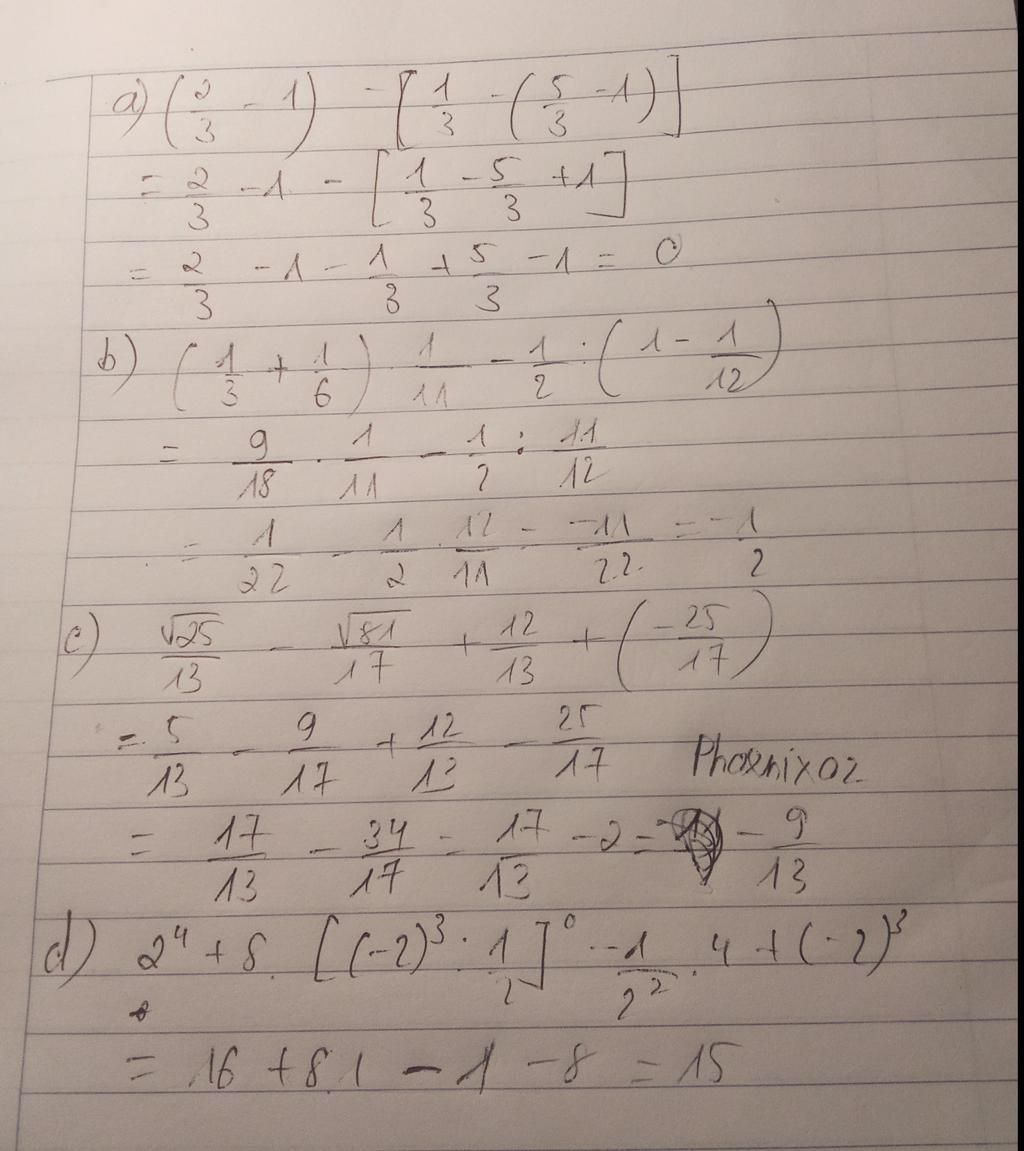 a) (2/3 - 1) - [1/3 - (5/3 - 1)]
= 2/3 - 1 - [1/3 - 5/3 + 1]
= 2/3 - 1 - 1/3 + 5/3 - 1 = 0
b) (1/3 + 1/6) · 1/11 - 1/2 : (1 - 1/12)
= 9/18 · 1/11 - 1/2 : 11/12
= 1/22 - 1/2 · 12/11 = -11/22 = -1/2
c) √25/13 - √81/17 + 12/13 + (-25/17)
= 5/13 - 9/17 + 12/13 - 25/17
Phoenixoz
= 17/13 - 34/17 = 17/13 - 2 = - 9/13
d) 2⁴ + 8 · [(-2)³ · 1/2]⁰ - 1/2² · 4 + (-2)³
= 16 + 8.1 - 1 - 8 = 15